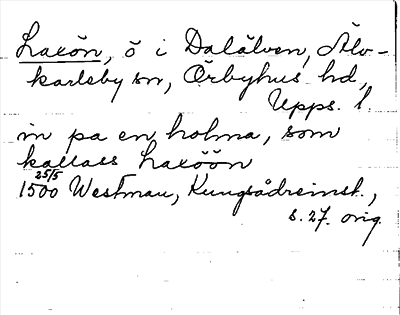 Laxön, ö i Dalälven, Älv-
karleby sn, Örbyhus hd,
Upps. l.
in pa en holma, som
kallass Laxöön
25/5
1500 Westman, Kungsådreinst.,
s. 27. orig.